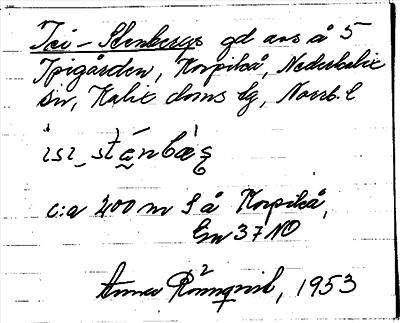 Isi-Stenbergs gd ans å 5
Ipigården, Korpikå, Nederkalix
sn, Kalix doms lg, Norrb. l
ɩsɩ_sténbæ̀rg
c:a 400 m S å Korpikå,
Em 37 NO
Anna Rönnqvist, 1953